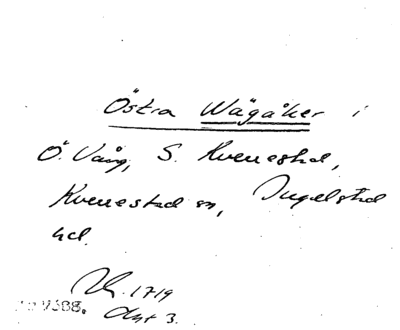 Östra Wägåker i
Ö. Vång, S. Kverrestad,
Kverrestad sn, Ingelstad
hd.
1719
Akt 3.